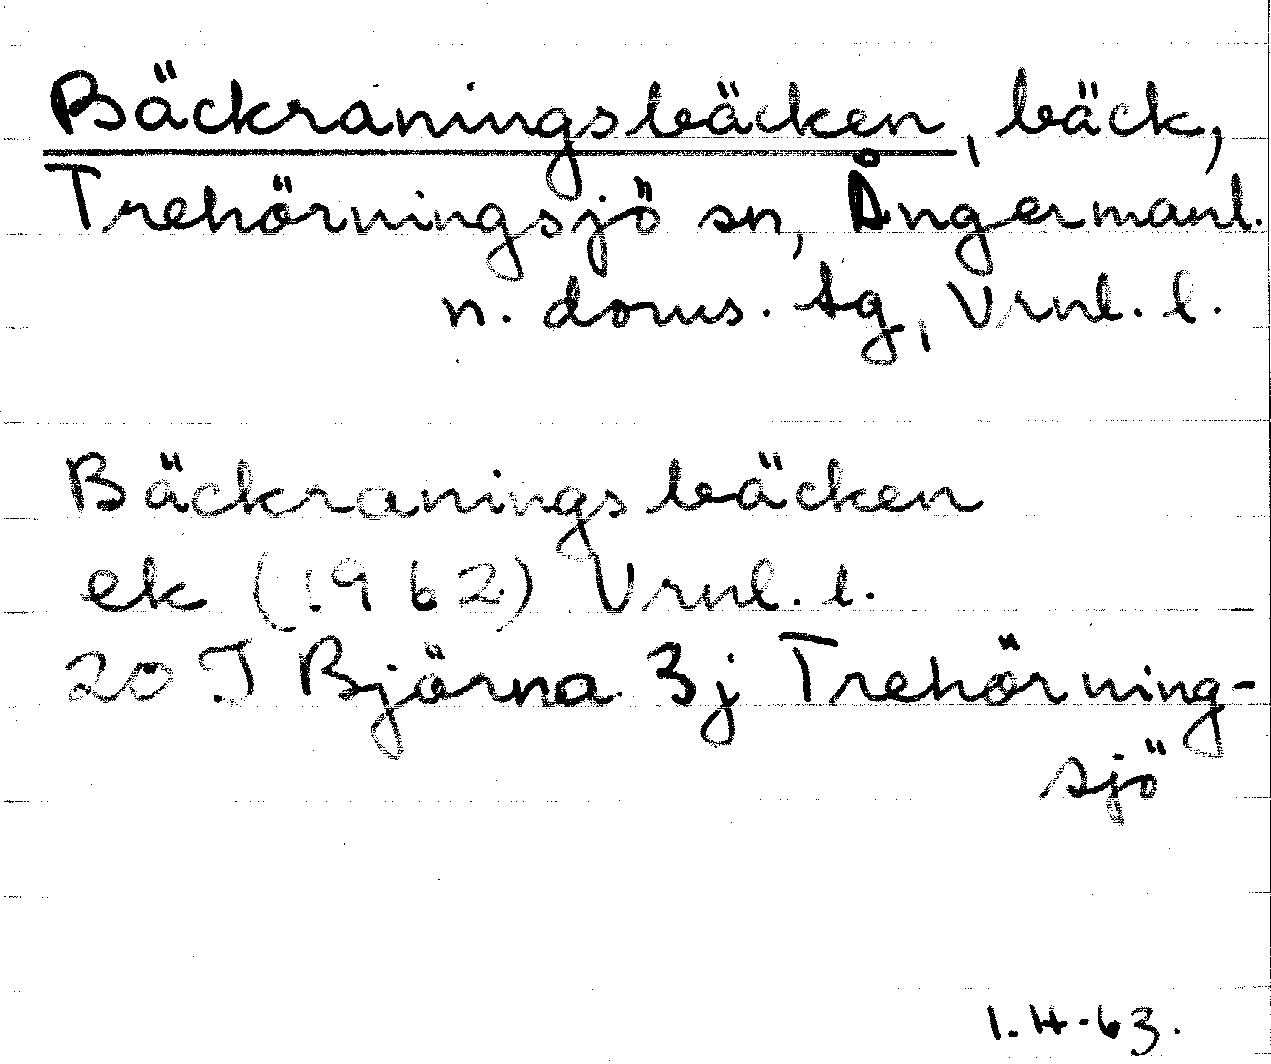 Bäckraningsbäcken, bäck,
Trehörningsjö sn, Ångermanl.
n. doms. tg, Vrnl. l.
Bäckraningsbäcken
ek (1962) Vrnl. l.
20 J Björna 3j Trehörning-
sjö
I. H-63.